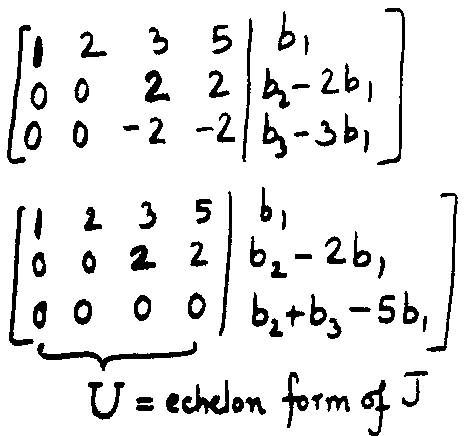 1 2 3 5 | b₁
0 0 2 2 | b₂ - 2b₁
0 0 -2 -2 | b₃ - 3b₁
1 2 3 5 | b₁
0 0 2 2 | b₂ - 2b₁
0 0 0 0 | b₂ + b₃ - 5b₁
U = echelon form of J